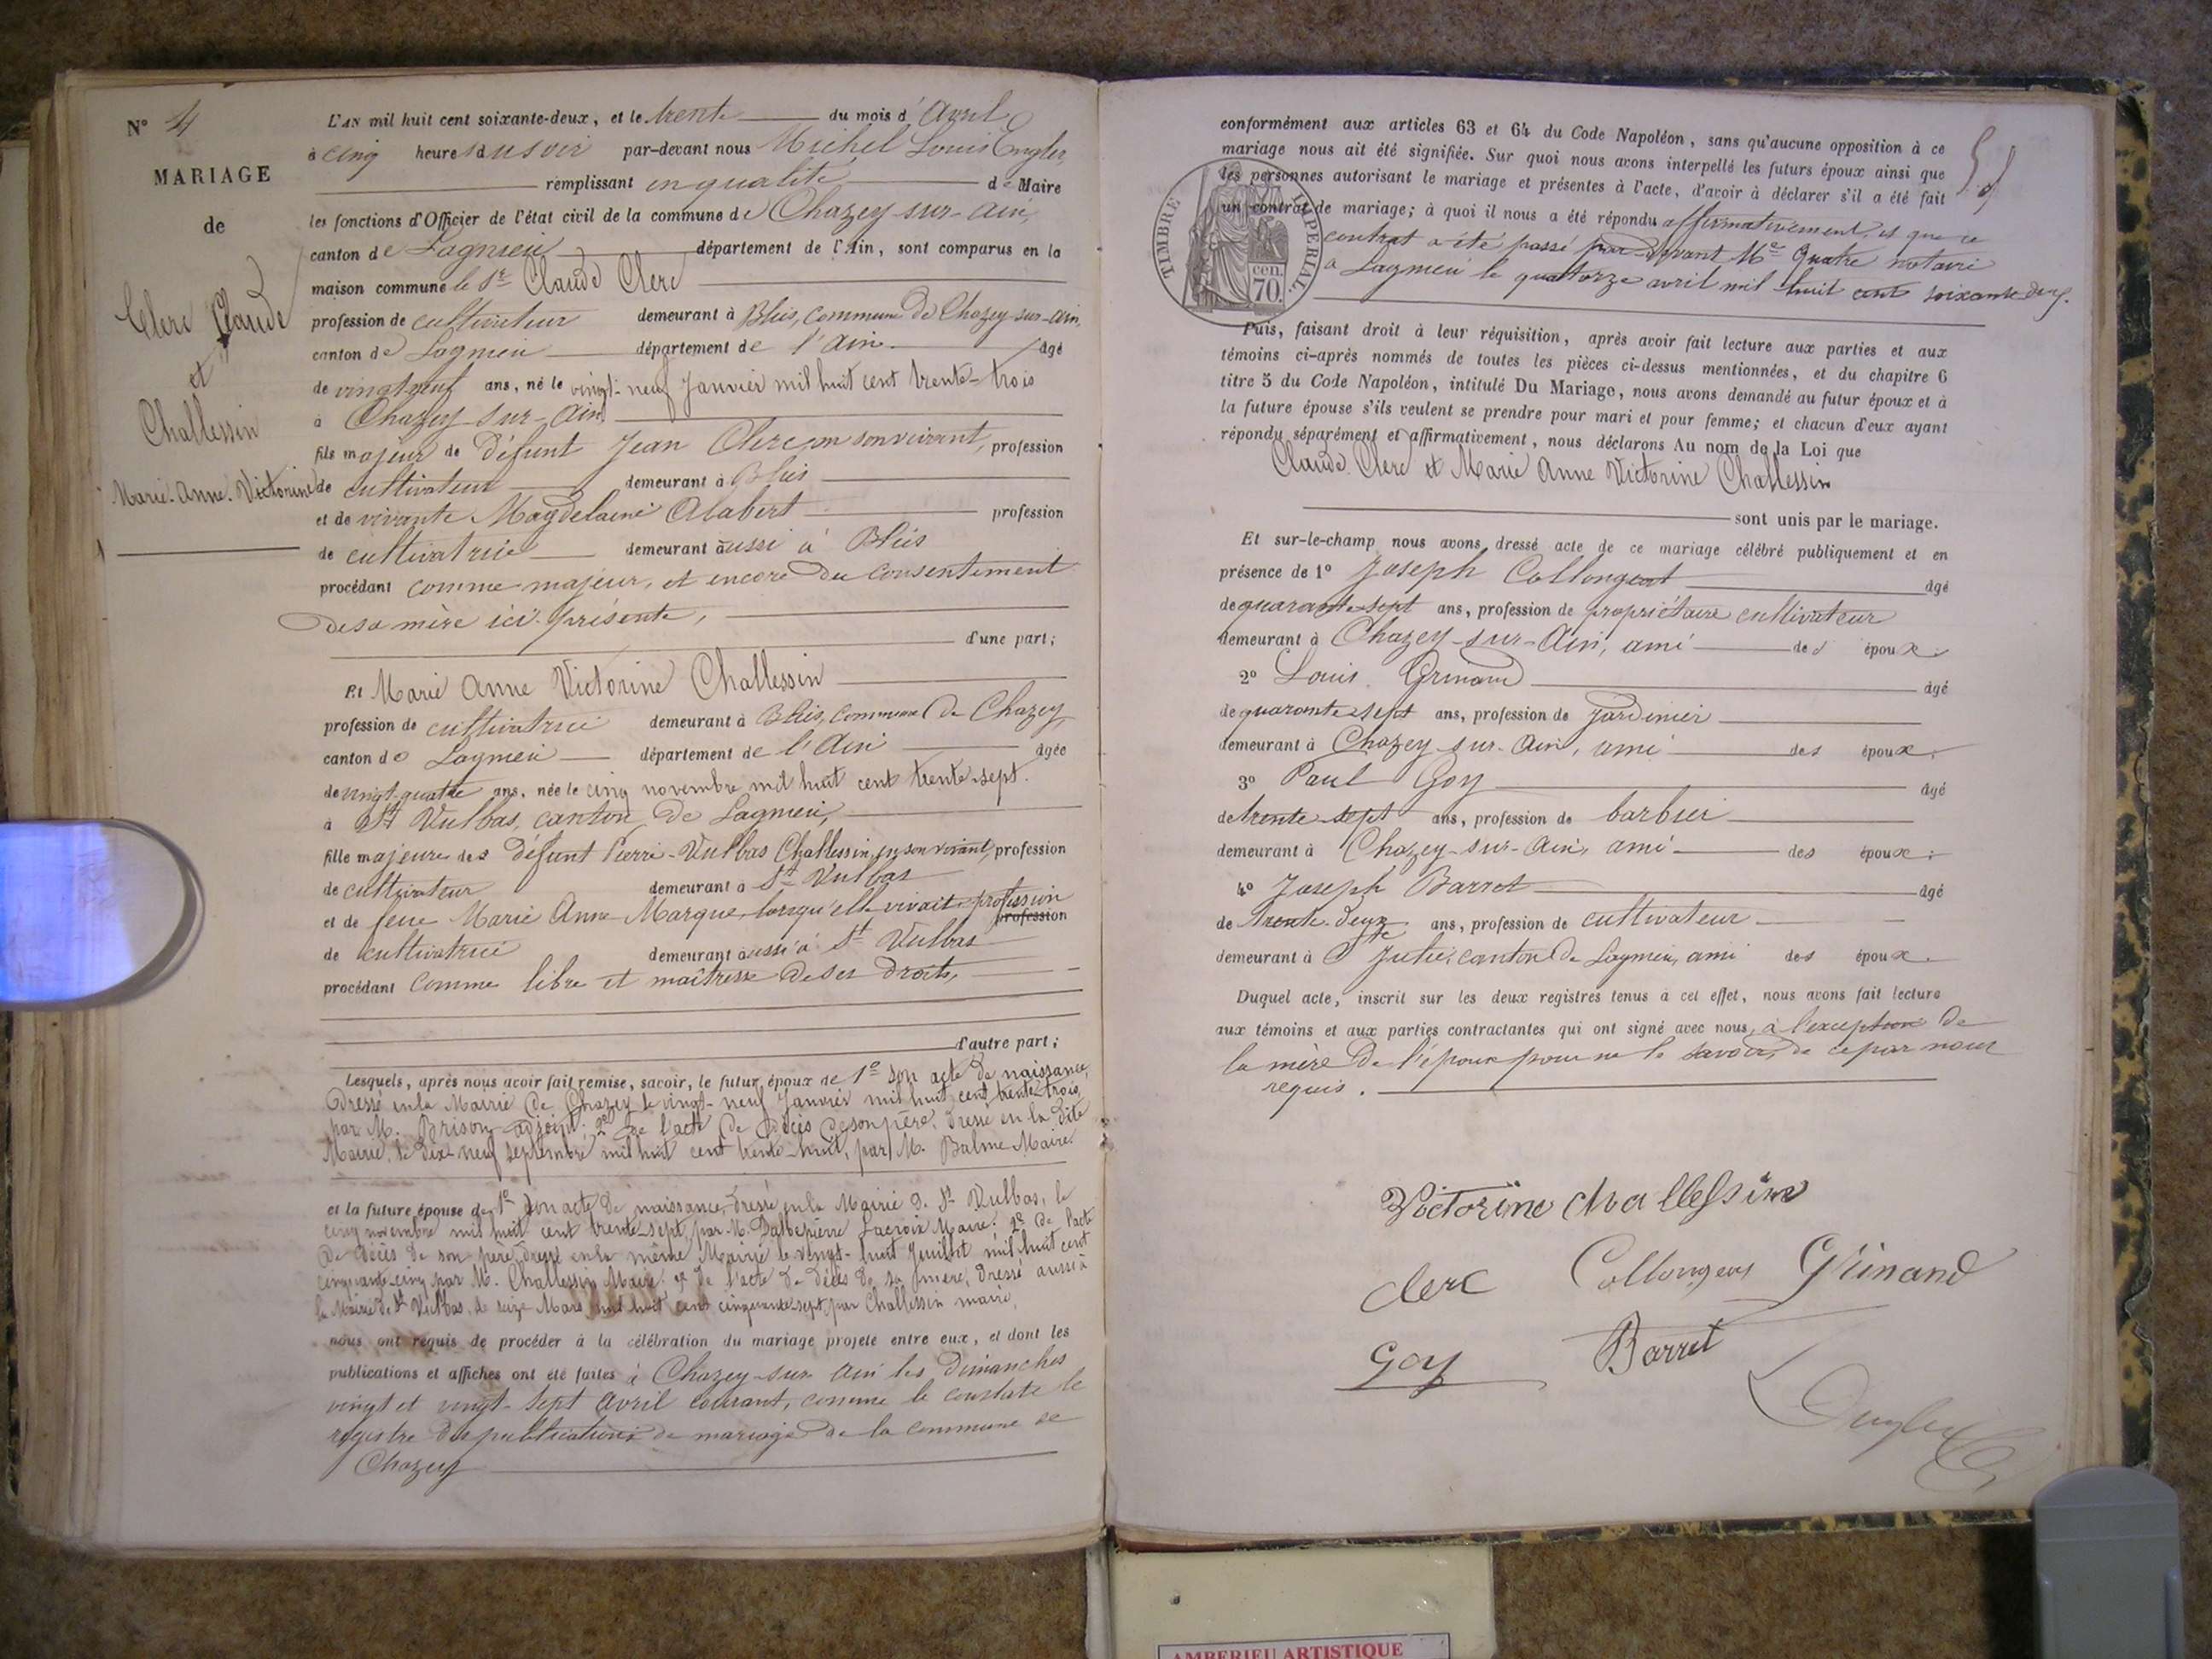 N° 4
MARIAGE
de
Clerc Claude
et
Challessin
Marie-Anne-Victorine
L'AN mil huit cent soixante-deux, et le trente du mois d'Avril
à cinq heures du soir par-devant nous Michel Louis Engler,
remplissant en qualité de Maire
les fonctions d'Officier de l'état civil de la commune de Chazey-sur-Ain,
canton de Lagnieu département de l'Ain, sont comparus en la
maison commune le Sr Claude Clerc
profession de cultivateur demeurant à Bléis, commune de Chazey-sur-Ain,
canton de Lagnieu département de l'Ain âgé
de vingt neuf ans, né le vingt-neuf Janvier mil huit cent trente-trois
à Chazey-sur-Ain
fils majeur de défunt Jean Clerc en son vivant, profession
de cultivateur demeurant à Bléis
et de vivante Magdelaine Alabert profession
de cultivatrice demeurant aussi à Bléis
procédant comme majeur, et encore du consentement
de sa mère ici présente,
d'une part;
Et Marie Anne Victorine Challessin
profession de cultivatrice demeurant à Bléis, commune de Chazey,
canton de Lagnieu département de l'Ain âgée
de vingt-quatre ans, née le cinq novembre mil huit cent trente-sept.
à St Vulbas, canton de Lagnieu,
fille majeure des défunt Pierre-Vulbas Challessin, en son vivant, profession
de cultivateur demeurant à St Vulbas
et de feue Marie Anne Marque, lorsqu'elle vivait, profession
profession
de cultivatrice demeurant aussi à St Vulbas
procédant comme libre et maîtresse de ses droits,
d'autre part;
Lesquels, après nous avoir fait remise, savoir, le futur époux de 1° son acte de naissance,
dressé en la Mairie de Chazey le vingt-neuf Janvier mil huit cent trente-trois,
par M. Brison adjoint; 2° de l'acte de décès de son père, dressé en la dite
Mairie, le dix-neuf septembre mil huit cent trente-huit, par M. Balme Maire
et la future épouse de 1° son acte de naissance, dressé en la Mairie de St Vulbas, le
cinq novembre mil huit cent trente-sept, par M. Lacroix Maire; 2° de l'acte
de décès de son père, dressé en la même Mairie le vingt-huit Juillet mil huit cent
cinquante-cinq par M. Challessin Maire; et de l'acte de décès de sa mère, dressé aussi à
la Mairie de St Vulbas, le seize Mars mil huit cent cinquante-sept, par Challessin maire,
nous ont requis de procéder à la célébration du mariage projeté entre eux, et dont les
publications et affiches ont été faites à Chazey-sur Ain les Dimanches
vingt et vingt-sept avril courant, comme le constate le
registre des publications de mariage de la commune de
Chazey
conformément aux articles 63 et 64 du Code Napoléon, sans qu'aucune opposition à ce
mariage nous ait été signifiée. Sur quoi nous avons interpellé les futurs époux ainsi que
les personnes autorisant le mariage et présentes à l'acte, d'avoir à déclarer s'il a été fait
un contrat de mariage; à quoi il nous a été répondu affirmativement, et que ce
contrat a été passé par-devant Me Quatre notaire
à Lagnieu le quatorze avril mil huit cent soixante deux.
TIMBRE IMPERIAL.
70.
cen.
Puis, faisant droit à leur réquisition, après avoir fait lecture aux parties et aux
témoins ci-après nommés de toutes les pièces ci-dessus mentionnées, et du chapitre 6
titre 5 du Code Napoléon, intitulé Du Mariage, nous avons demandé au futur époux et à
la future épouse s'ils veulent se prendre pour mari et pour femme; et chacun d'eux ayant
répondu séparément et affirmativement, nous déclarons Au nom de la Loi que
Claude Clerc et Marie Anne Victorine Challessin
sont unis par le mariage.
Et sur-le-champ nous avons dressé acte de ce mariage célébré publiquement et en
présence de 1° Joseph Collongeat âgé
de quarante-sept ans, profession de propriétaire cultivateur
demeurant à Chazey-sur-Ain, ami des époux.
2° Louis Grinand âgé
de quarante-sept ans, profession de jardinier
demeurant à Chazey-sur-Ain, ami des époux;
3° Paul Goy âgé
de trente-sept ans, profession de barbier
demeurant à Chazey-sur-Ain, ami des époux;
4° Joseph Barret âgé
de trente-deux ans, profession de cultivateur
demeurant à Ste Julie, canton de Lagnieu, ami des époux.
Duquel acte, inscrit sur les deux registres tenus à cet effet, nous avons fait lecture
aux témoins et aux parties contractantes qui ont signé avec nous, à l'exception de
la mère de l'époux pour ne le savoir, de ce par nous
requis.
Victorine Challessin
Clerc Collongeat Grinand
Goy Barret
Engler
AMBERIEU ARTISTIQUE